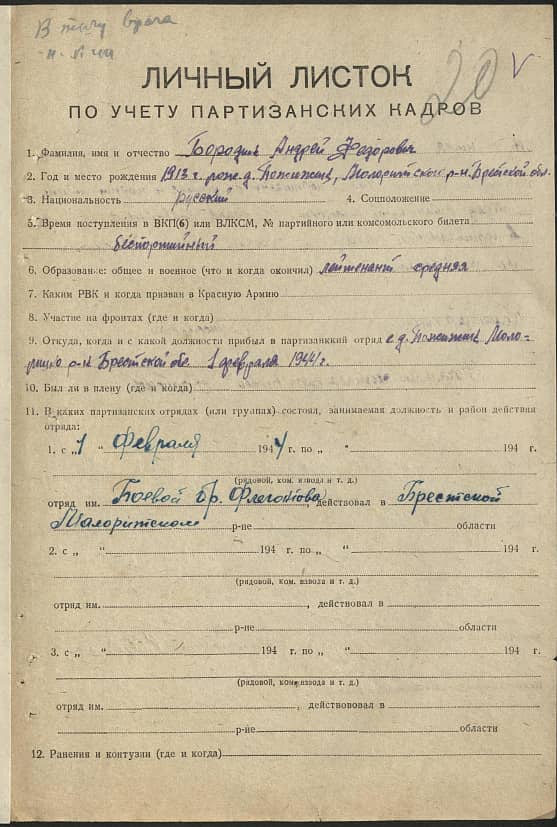 В тылу врага
20 V
ЛИЧНЫЙ ЛИСТОК
ПО УЧЕТУ ПАРТИЗАНСКИХ КАДРОВ
1. Фамилия, имя и отчество Бородин Андрей Федорович
2. Год и место рождения 1913 г. рожд. д. Пожижин, Малоритский р-н. Брестской обл.
3. Национальность русский 4. Соцположение
5. Время поступления в ВКП(б) или ВЛКСМ, № партийного или комсомольского билета
беспартийный
6. Образование: общее и военное (что и когда окончил) лейтенант средняя
7. Каким РВК и когда призван в Красную Армию
8. Участие на фронтах (где и когда)
9. Откуда, когда и с какой должности прибыл в партизанский отряд с д. Пожижин Мало-
р-н Брестской обл. 1 февраля 1944 г.
10. Был ли в плену (где и когда)
11. В каких партизанских отрядах (или группах) состоял, занимаемая должность и район действия
отряда:
1. с „1 “ Февраля 1944 г. по „ “ 194 г.
(рядовой, ком. взвода и т. д.)
отряд им. Боевой бр. Флегонтова, действовал в Брестской
Малоритском р-не области
2. с „ “ 194 г. по „ “ 194 г.
(рядовой, ком. взвода и т. д.)
отряд им. , действовал в
р-не области
3. с „ “ 194 г. по „ “ 194 г.
(рядовой, ком. взвода и т. д.)
отряд им. , действововал в
р-не области
12. Ранения и контузии (где и когда)